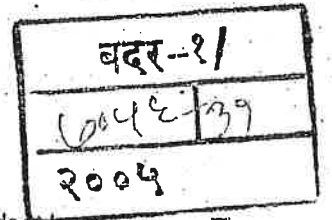 बदर-१/
७०५६-३१
२००५